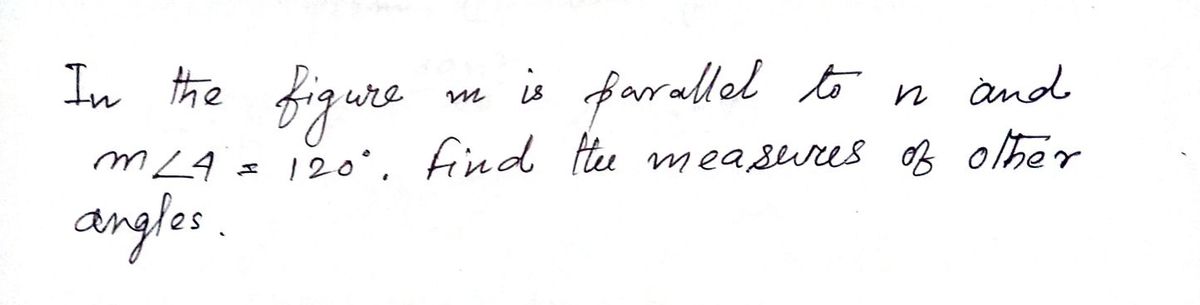 In the figure m is parallel to n and
m∠4 = 120°. find the measures of other
angles.